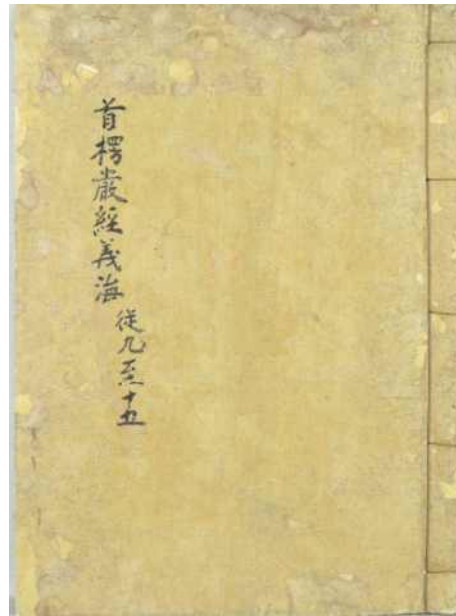 首楞嚴經義海
從九至十五